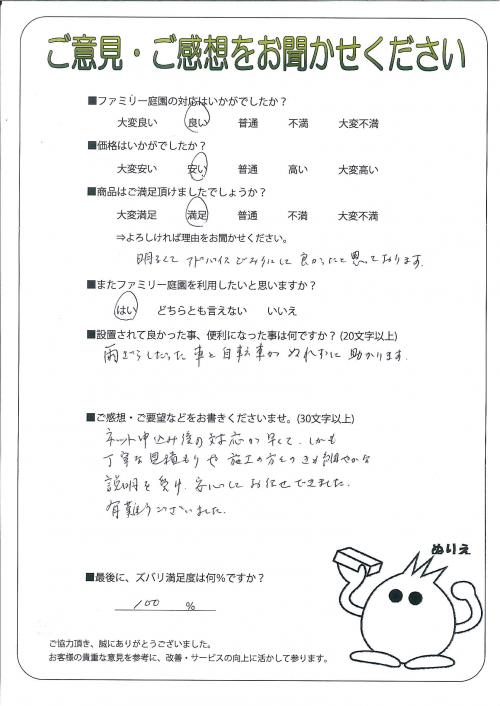 ご意見・ご感想をお聞かせください
■ファミリー庭園の対応はいかがでしたか？
大変良い 良い 普通 不満 大変不満
■価格はいかがでしたか？
大変安い 安い 普通 高い 大変高い
■商品はご満足頂けましたでしょうか？
大変満足 満足 普通 不満 大変不満
⇒よろしければ理由をお聞かせください。
明るくて アドバイスどおりにして 良かったと思っております。
■またファミリー庭園を利用したいと思いますか？
はい どちらとも言えない いいえ
■設置されて良かった事、便利になった事は何ですか？(20文字以上)
雨ざらしだった 車と自転車が ぬれずに 助かります.
■ご感想・ご要望などをお書きくださいませ。(30文字以上)
ネット申込み後の対応が早くて、しかも
丁寧な見積もりや 施工の方のきめ細やかな
説明を受け、安心して お任せできました.
有難うございました.
ぬりえ
■最後に、ズバリ満足度は何％ですか？
100 %
ご協力頂き、誠にありがとうございました。
お客様の貴重な意見を参考に、改善・サービスの向上に活かして参ります。